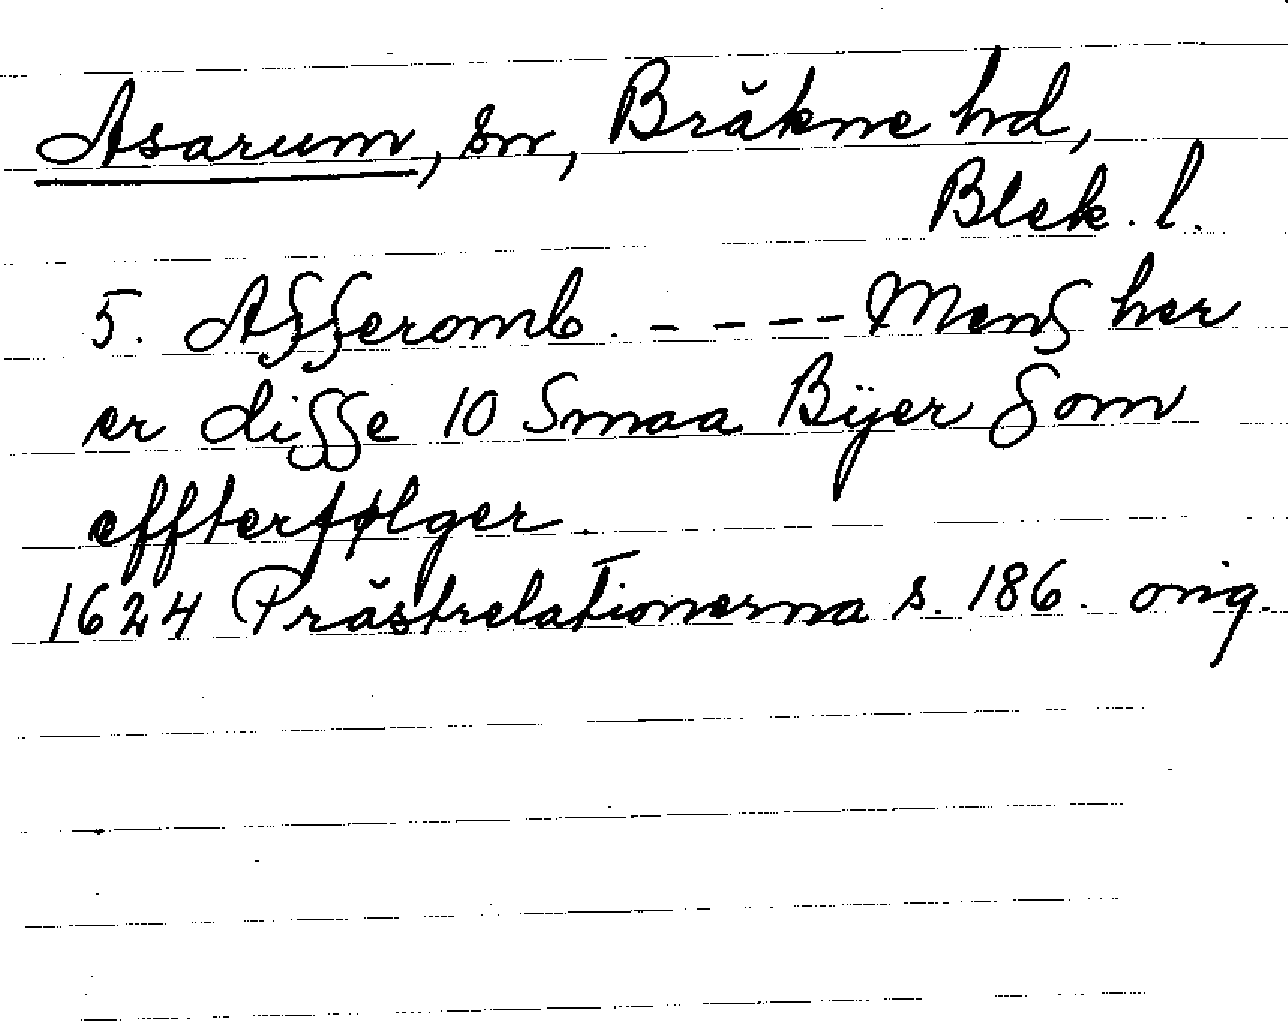 Asarum, sn, Bräkne hd,
Blek. l.
5. Asseromb. - - - - Mens her
er disse 10 Smaa Bÿer Som
effterfølger.
1624 Prästrelationerna s. 186. orig.